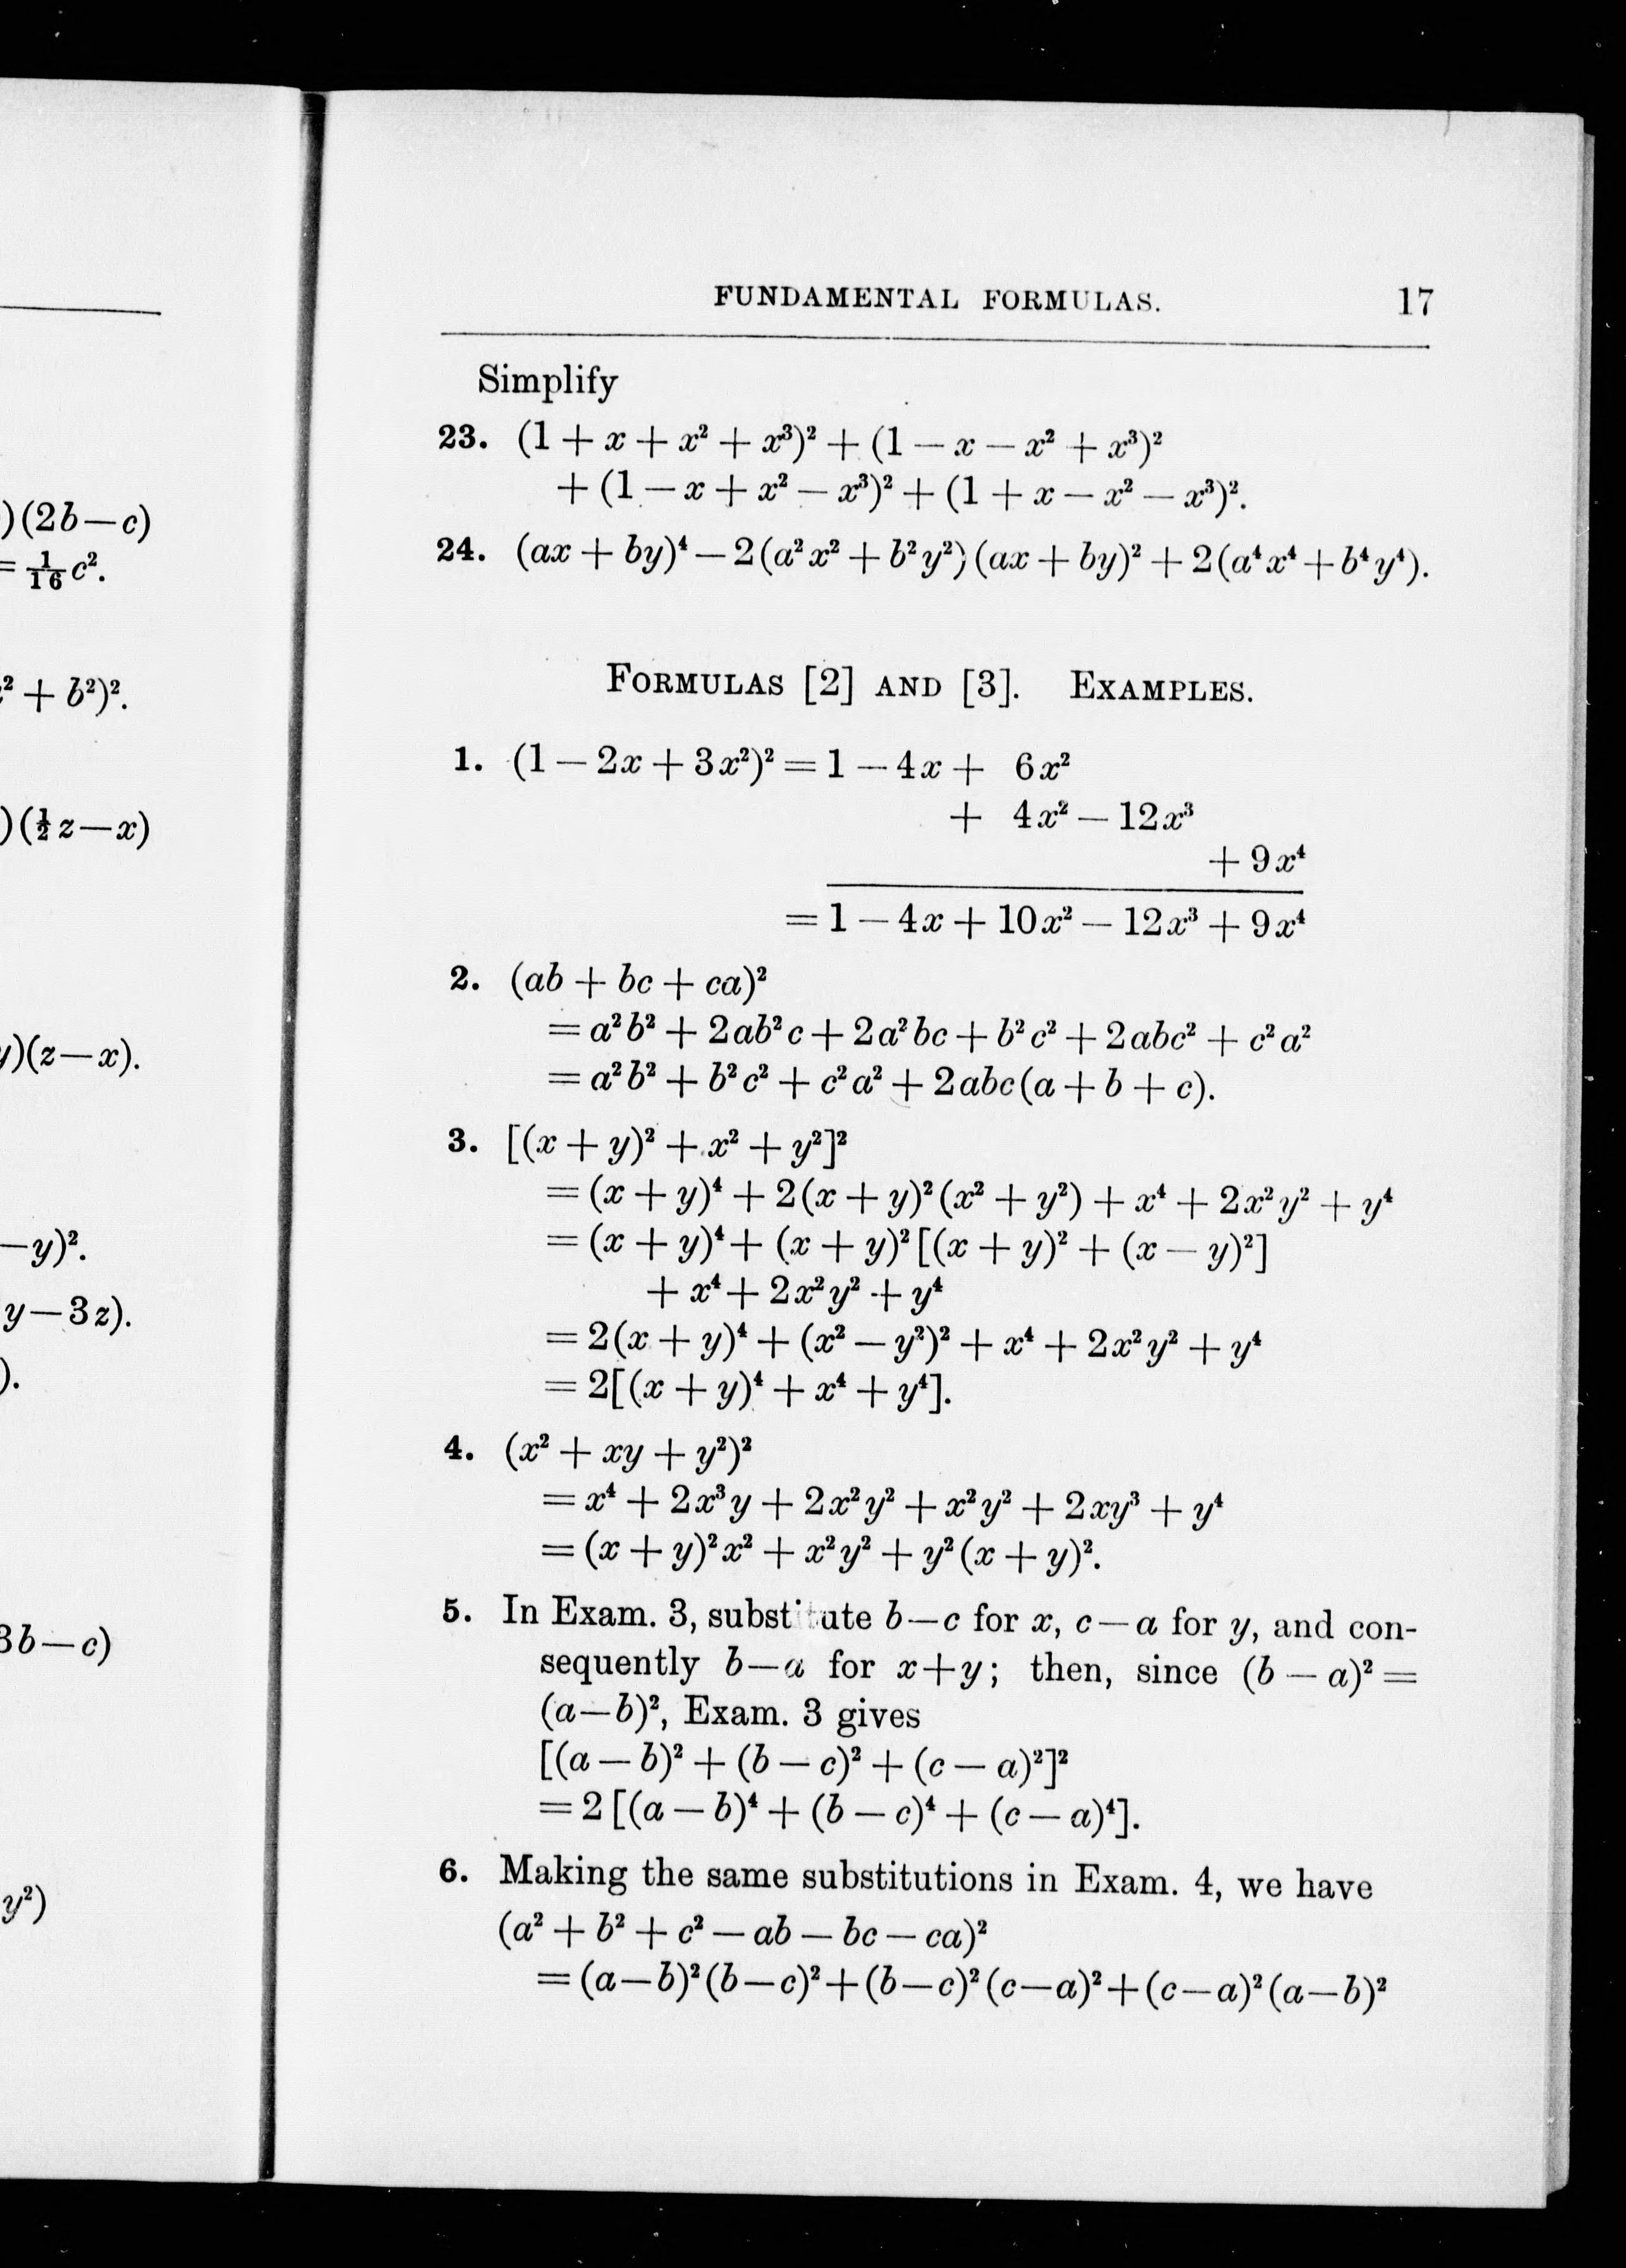 )(2b—c)
= 1/16 c².
² + b²)².
)(½z—x)
)(z—x).
—y)².
y—3z).
).
3b—c)
y²)
FUNDAMENTAL FORMULAS. 17
Simplify
23. (1 + x + x² + x³)² + (1 — x — x² + x³)²
+ (1 — x + x² — x³)² + (1 + x — x² — x³)².
24. (ax + by)⁴ — 2(a²x² + b²y²)(ax + by)² + 2(a⁴x⁴ + b⁴y⁴).
FORMULAS [2] AND [3]. EXAMPLES.
1. (1 — 2x + 3x²)² = 1 — 4x + 6x²
+ 4x² — 12x³
+ 9x⁴
= 1 — 4x + 10x² — 12x³ + 9x⁴
2. (ab + bc + ca)²
= a²b² + 2ab²c + 2a²bc + b²c² + 2abc² + c²a²
= a²b² + b²c² + c²a² + 2abc(a + b + c).
3. [(x + y)² + x² + y²]²
= (x + y)⁴ + 2(x + y)²(x² + y²) + x⁴ + 2x²y² + y⁴
= (x + y)⁴ + (x + y)²[(x + y)² + (x — y)²]
+ x⁴ + 2x²y² + y⁴
= 2(x + y)⁴ + (x² — y²)² + x⁴ + 2x²y² + y⁴
= 2[(x + y)⁴ + x⁴ + y⁴].
4. (x² + xy + y²)²
= x⁴ + 2x³y + 2x²y² + x²y² + 2xy³ + y⁴
= (x + y)²x² + x²y² + y²(x + y)².
5. In Exam. 3, substitute b—c for x, c—a for y, and con-
sequently b—a for x+y; then, since (b — a)² =
(a—b)², Exam. 3 gives
[(a — b)² + (b — c)² + (c — a)²]²
= 2[(a — b)⁴ + (b — c)⁴ + (c — a)⁴].
6. Making the same substitutions in Exam. 4, we have
(a² + b² + c² — ab — bc — ca)²
= (a—b)²(b—c)² + (b—c)²(c—a)² + (c—a)²(a—b)²